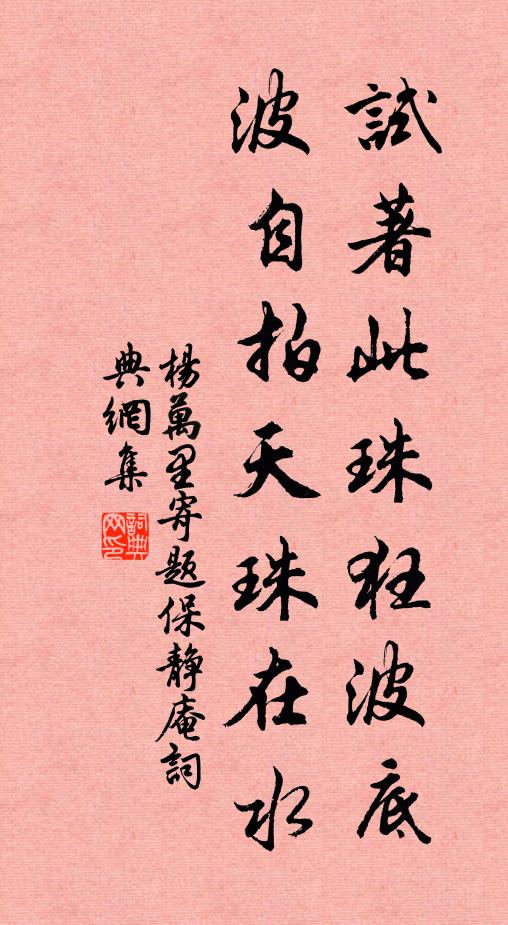 試著此珠狂波底
波自拍天珠在水
楊萬里寄題保靜庵詞
典網集
詞典
网印